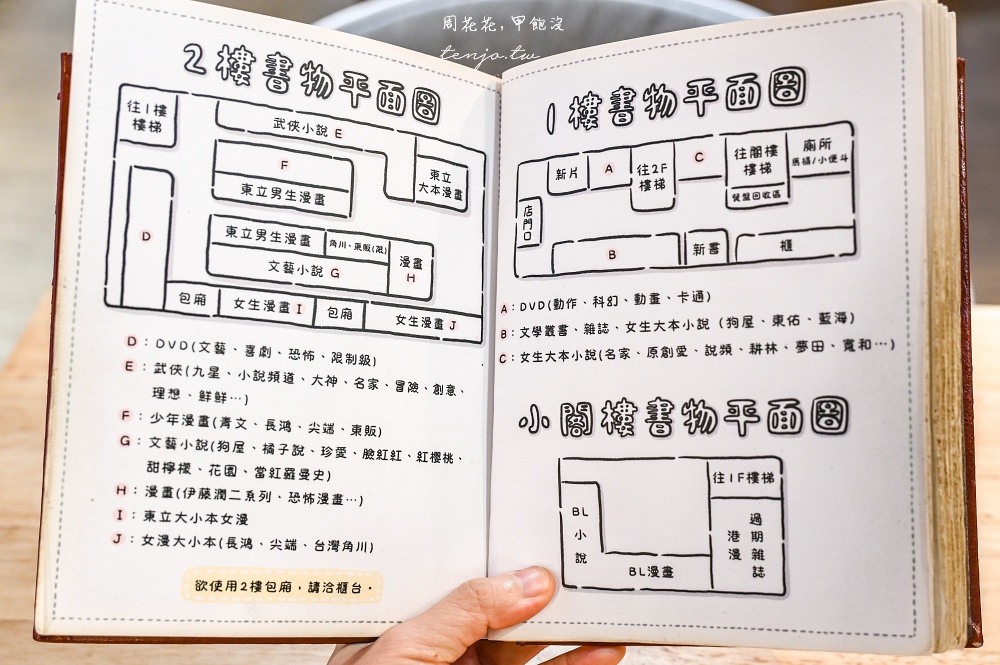 周花花，甲飽沒
tenjo.tw
2樓書物平面圖
往1樓
樓梯
武俠小說 E
F
東立男生漫畫
東立
大本漫畫
D
東立男生漫畫
角川、東販(限)
漫畫
H
文藝小說 G
包廂
女生漫畫 I
包廂
女生漫畫 J
D：DVD(文藝、喜劇、恐怖、限制級)
E：武俠(九星、小說頻道、大神、名家、冒險、創意、
理想、鮮鮮…)
F：少年漫畫(青文、長鴻、尖端、東販)
G：文藝小說(狗屋、橘子說、珍愛、臉紅紅、紅櫻桃、
甜檸檬、花園、當紅羅曼史)
H：漫畫(伊藤潤二系列、恐怖漫畫…)
I：東立大小本女漫
J：女漫大小本(長鴻、尖端、台灣角川)
欲使用2樓包廂，請洽櫃台。
1樓書物平面圖
新片
A
往2F
樓梯
C
往閣樓
樓梯
餐盤回收區
廁所
馬桶/小便斗
店門口
B
新書
櫃
A：DVD(動作、科幻、動畫、卡通)
B：文學叢書、雜誌、女生大本小說（狗屋、東佑、藍海)
C：女生大本小說(名家、原創愛、說頻、耕林、夢田、寬和…)
小閣樓書物平面圖
往1F樓梯
BL
小
說
BL漫畫
過期雜誌
港漫